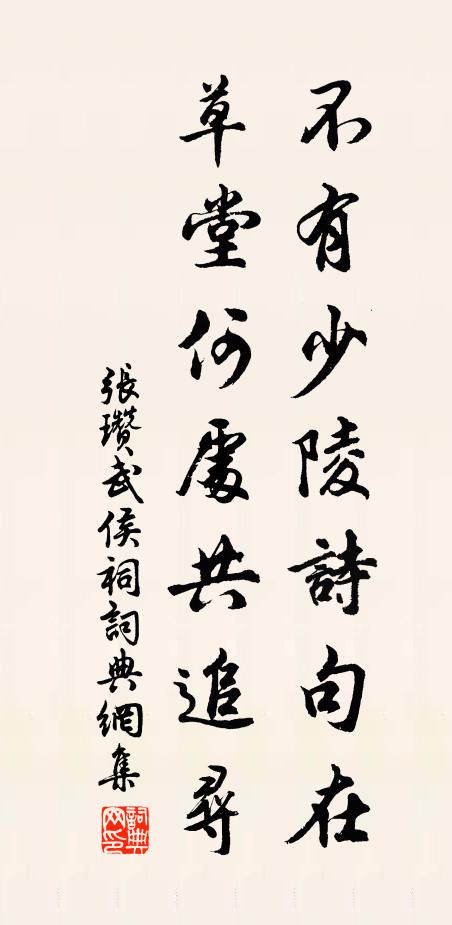 不有少陵詩句在
草堂何處共追尋
張瓚武侯祠詞典網集
詞典網印